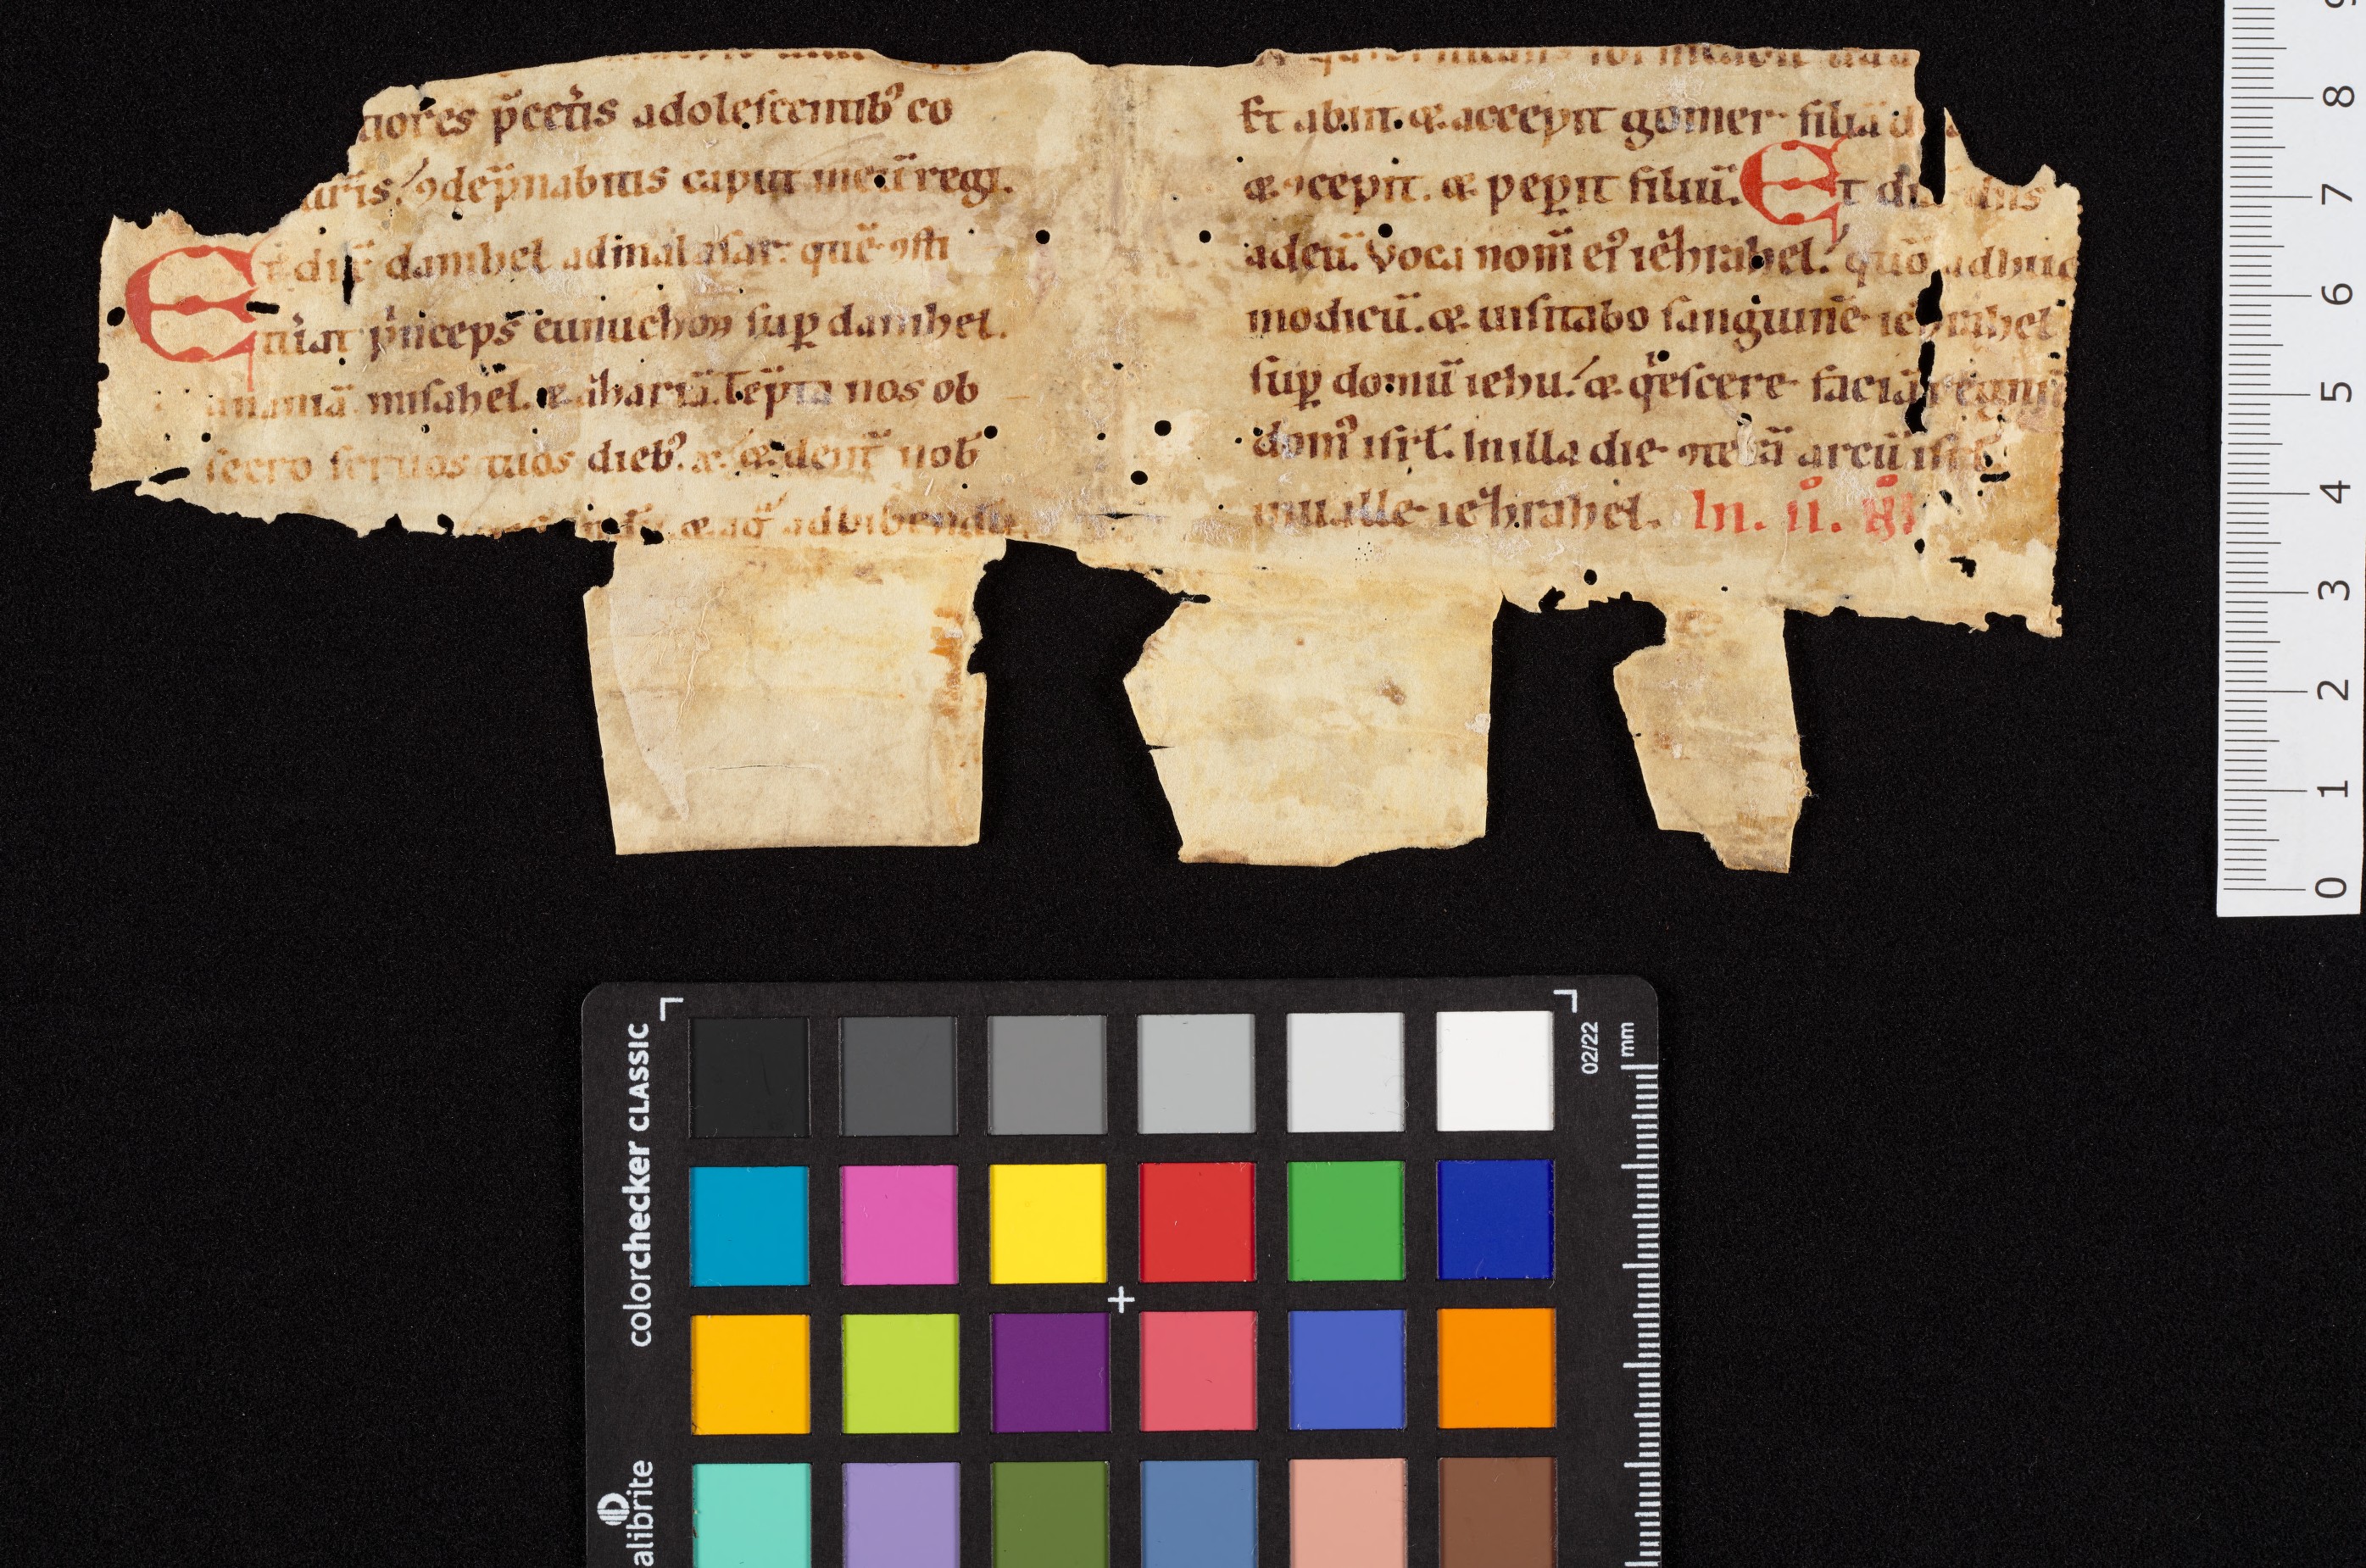 tiores p̄cet̄is adolescentib᾽ co
ꝯdēpnabitis caput meū regi.
Et dix̄ danihel ad malasar. quē ꝯsti
tu̇at p̊nceps eunuchoꝝ sup̱ danihel.
ananiā misahel. æ aẑhariā. Tēpta nos ob
secro seruos tuos dieb᾽. x. æ dent̄ nob̄
æ aq̄ ad bibendū
Et abiit. æ accepit gomer filiā d
æ ꝯcepit. æ pep̱it filiū. Et di dn̄s
ad eū. Voca nom̄ ei᾽ ieẑhrahel. quō adhuc
modicū. æ uisitabo sanguinē ieẑhrahel
sup̱ domū iehu. æ q̊escere faciā regnū
dom᾽ isrl̄. In illa die ꝯterā arcū isrl̄
in ualle ieẑhrahel. In. ii.
colorchecker CLASSIC
calibrite
02/22
mm
0 1 2 3 4 5 6 7 8 9